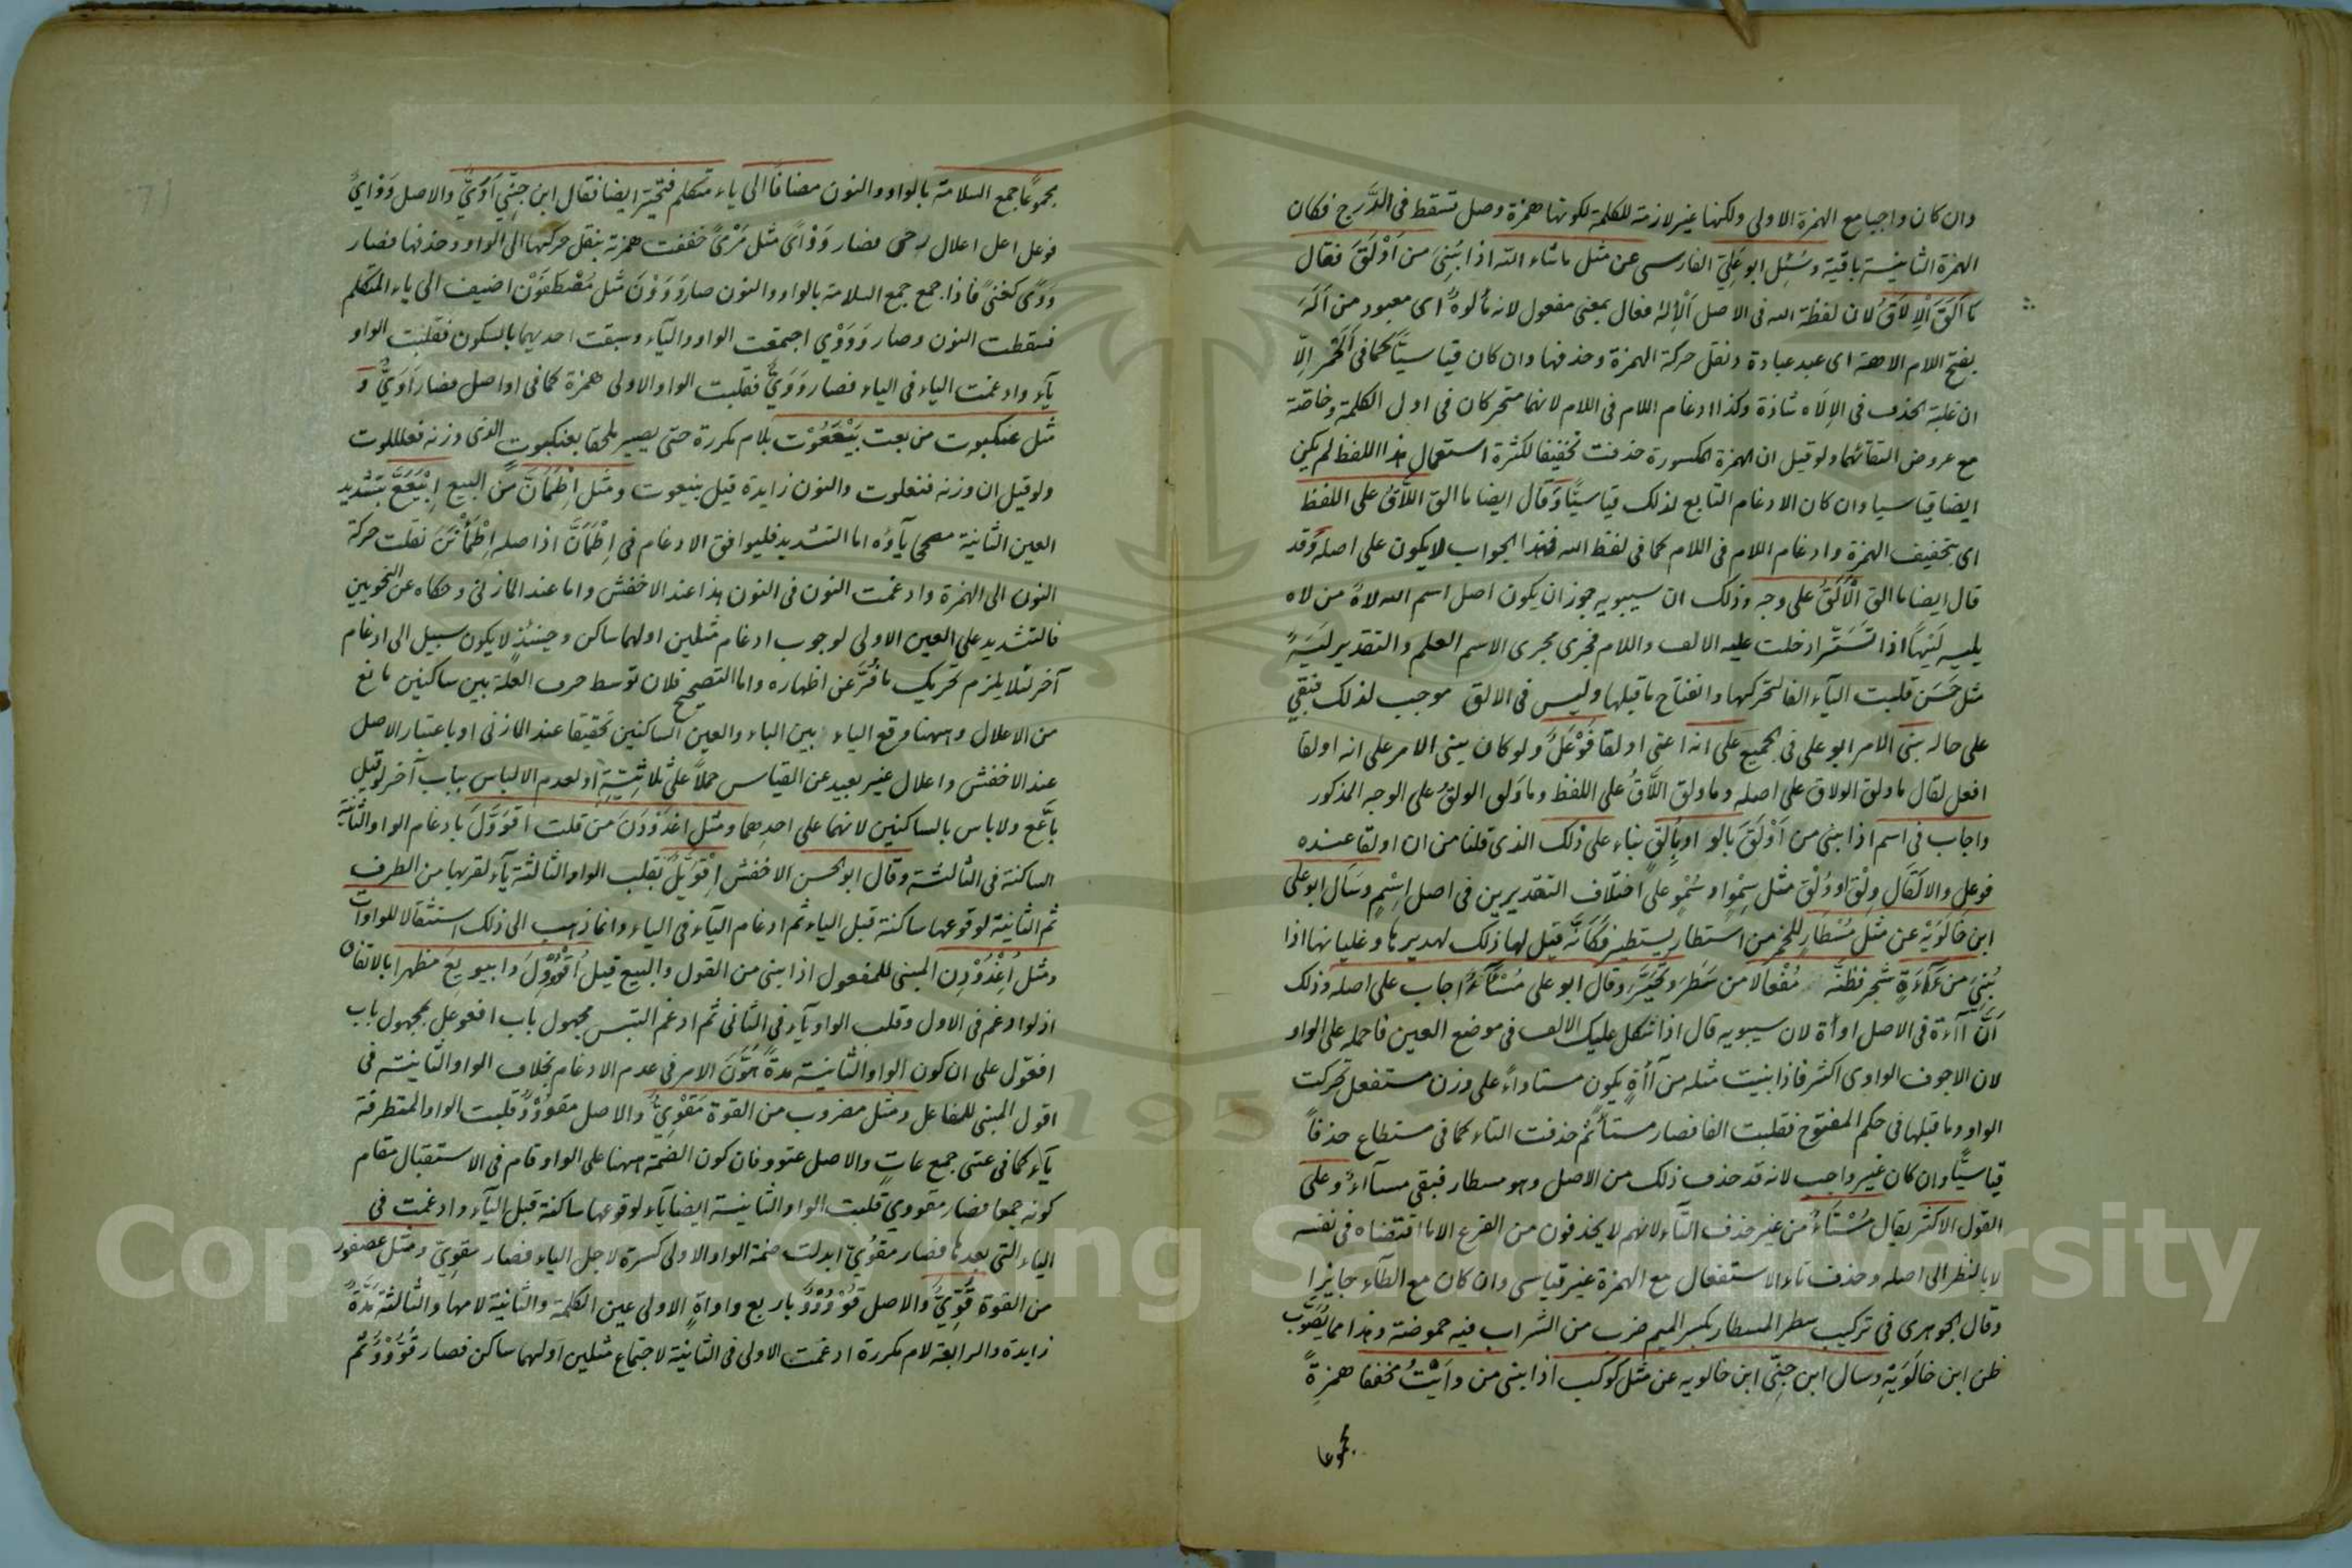 وان كان واجبا مع الهمزة الاولى ولكنها غير لازمة للكلمة لكونها همزة وصل تسقط فى الدَّرج فكان
الهمزة الثانية باقية وسُئِل ابو عَلِيّ الفارسى عن مثل ما شاء الله اذا بُنِىَ من اَوْلَقَ فقال
ما اَلَقَ اَلْاِلَاقُ لان لفظة الله فى الاصل اَلْاِلهُ فعال بمعنى مفعول لانه مألوهٌ اى معبود من اَلَهَ
بفتح اللام الاهة اى عبد عبادة ونقل حركة الهمزة وحذفها وان كان قياسيًّا كما فى اَلْحَمْر اِلّا
ان غلبة الحذف فى الاِلَاه شاذة وكذا ادغام اللام فى اللام لانهما متحركان فى اول الكلمة وخاصّة
مع عروض التقائهما ولو قيل ان الهمزة المكسورة حذفت تخفيفا لكثرة استعمال هذا اللفظ لم يكن
ايضا قياسيا وان كان الادغام التابع لذلك قياسيًّا وَقَال ايضا ما الق اللَّاقُ على اللفظ
اى بتخفيف الهمزة وادغام اللام فى اللام كما فى لفظ الله فهذا الجواب لا يكون على اصله وَقد
قال ايضا ما الق الْاَلَقُ على وجه وذلك ان سيبويه جوز ان يكون اصل اسم الله لاهٌ من لاه
يليه لَيْهًا اذا تَسَتَّر ادخلت عليه الالف واللام فجرى مجرى الاسم العلم والتقدير لَيَهٌ
مثل حَسَن قلبت الياء الفا لتحركها وانفتاح ما قبلها وليس فى الالق موجب لذلك فبقى
على حاله بنى الامر ابو على فى الجميع على انه اعنى اولقا فَوْعَلٌ ولو كان يبنى الامر على انه اولقا
افعل لقال ما ولق الولاق على اصله وما ولق اللَّاقُ على اللفظ وما وَلق الولقُ على الوجه المذكور
واجاب فى اسم اذا بنى من اَوْلَقَ بالو او بِاُلق بناء على ذلك الذى قلنا من ان اولقا عنده
فوعل والا لَقَال وِلْق او وُلْق مثل سِمْو او سُمْو على اختلاف التقديرين فى اصل اِسْمٍ وسَأل ابو على
ابن خَالَوَيْه عن مثل مُسْطَارٍ للخمر من استطار يستطير فكأنّه قيل لها ذلك لهديرها وغليانها اذا
بُنِىَ من آءَةٍ شجر فظنّه مُفْعالا من سَطَرَ وتحيَّر وقال ابو على مُسْآءٌ اجاب على اصله وذلك
اَنَّ آءة فى الاصل اوأة لان سيبويه قال اذا اشكل عليك الالف فى موضع العين فاحمله على الواو
لان الاجوف الواوى اكثر فاذا بنيت مثله من آءَةٍ يكون مستاواءً على وزن مستفعل تحركت
الواو وما قبلها فى حكم المفتوح فقلبت الفا فصار مستأءٌ ثم حذفت التاء كما فى مستطاع حذفاً
قياسيًّا وان كان غير واجب لانه قد حذف ذلك من الاصل وهو مسطار فبقى مسآءٌ وعلى
القول الاكثر يقال مُسْتَآءٌ من غير حذف التّاء لانهم لا يحذفون من الفرع الا ما اقتضاه فى نفسه
لا بالنظر الى اصله وحذف تاء الاستفعال مع الهمزة غير قياسى وان كان مع الطآء جايزا
وقال الجوهرى فى تركيب سطر المسطار بكسر الميم ضرب من الشراب فيه حموضة وهذا مما يُصَوِّب
ظن ابن خالَوَيْهِ وسأل ابن جِنِّى ابن خالويه عن مثل كوكب اذا بنى من وأَيْتُ مخففا همزةً
مجموعا
مجموعًا جمع السلامة بالواو والنون مضافًا الى ياء متكلم فتحيّر ايضا فقال ابن جِنِّى اَوَىَّ والاصل وَوْاَيٌ
فوعل اعل اعلال رحى فصار وَوْاًى مثل مَرْمًى خففت همزته بنقل حركتها الى الواو وحذفها فصار
وَوًى كفتىً فاذا جمع جمع السلامة بالواو والنون صار وَوَوْنَ مثل مُصْطَفَوْنَ اضيف الى ياء المتكلم
فسقطت النون وصار وَوَوْيَ اجتمعت الواو والياء وسبقت احديهما بالسكون فقلبت الواو
يآء وادغمت الياء فى الياء فصار وَوَىَّ فقلبت الواو الاولى همزة كما فى اواصل فصار اَوَىَّ وَ
مثل عنكبوت من بعت بَيْعَعُوْت بلام مكررة حتى يصير ملحقا بعنكبوت الذى وزنه فعللوت
ولو قيل ان وزنه فنعلوت والنون زايدة قيل بنيعوت ومثل اِطْمَأَنَّ من البيع اِبْيَعَعَّ بتشديد
العين الثانية مصححا يآؤه اما التشديد فليوافق الادغام فى اِطْمَأَنَّ اذ اصله اِطْمَأْنَنَ نقلت حركة
النون الى الهمزة وادغمت النون فى النون هذا عند الاخفش واما عند المازنى وحكاه عن النحويين
فالتشديد على العين الاولى لوجوب ادغام مثلين اولهما ساكن وحينئذ لا يكون سبيل الى ادغام
آخر لئلا يلزم تحريك ما فُرَّ عن اظهاره واما التصحيح فلان توسط حرف العلة بين ساكنين مانع
من الاعلال وههنا وقع الياء بين الباء والعين الساكنين تحقيقا عند المازنى او باعتبار الاصل
عند الاخفش واعلال غير بعيد عن القياس حملاً على ثلاثيّه او لعدم الالباس بباب آخر لو قيل
باعّع ولا باس بالساكنين لانهما على احدهما ومثل اغدَوْدَنَ من قلت اقوَوَّلَ بادغام الواو الثانية
الساكنة فى الثالثة وقال ابو الحسن الاخفش اِقْوَيَّلَ بقلب الواو الثالثة يآء لقربها من الطرف
ثم الثانية لوقوعها ساكنة قبل الياء ثم ادغام اليآء فى الياء وانما ذهب الى ذلك استثقالا للواوات
ومثل اُغْدُوْدِن المبنى للمفعول اذا بنى من القول والبيع قيل اُقْوُوْوِلَ وابيويع مظهرا بالاتفاق
اذ لو ادغم فى الاول وقلب الواو يآء فى الثانى ثم ادغم التبس مجهول باب افعوعل بمجهول باب
افعوّل على ان كون الواو الثانية مدةً هَوَّنَ الامر فى عدم الادغام بخلاف الواو الثانية فى
اقوول المبنى للفاعل ومثل مضروب من القوة مَقْوِىٌّ والاصل مقوُوْوٌ قلبت الواو المتطرفة
يآء كما فى عتى جمع عاتٍ والاصل عتوو فان كون الضمة ههنا على الواو قام فى الاستثقال مقام
كونه جمعا فصار مقووي قلبت الواو الثانية ايضا يآء لوقوعها ساكنة قبل اليآء وادغمت فى
الياء التى بعدها فصار مقوُيّ ابدلت ضمة الواو الاولى كسرة لاجل الياء فصار مقوِيّ ومثل عصفور
من القوة قُوِّىٌّ والاصل قُوْوُوْوٌ باربع واواةٍ الاولى عين الكلمة والثانية لامها والثالثة مَدَّةٌ
زايدة والرابعة لام مكررة ادغمت الاولى فى الثانية لاجتماع مثلين اولهما ساكن فصار قُوُّوْوٌ ثم
Copyright © King Saud University
195